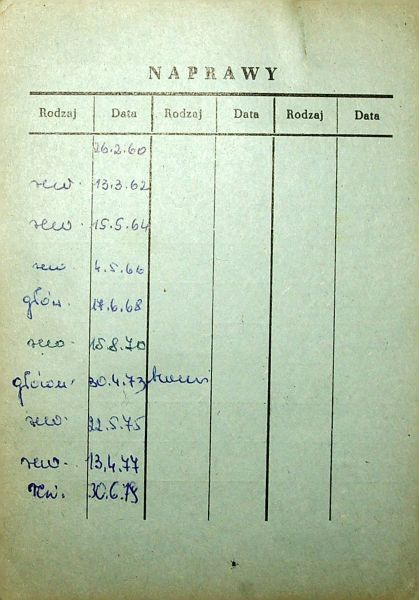 NAPRAWY
Rodzaj Data Rodzaj Data Rodzaj Data
26.2.60
rew. 13.3.62
rew 15.5.64
rew 4.5.66
głów 17.6.68
rew 15.8.70
główn. 30.4.73
rew. 22.5.75
rew. 13.4.77
rew. 30.6.79